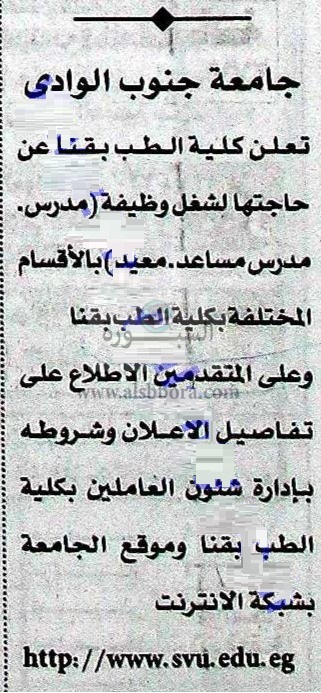 جامعة جنوب الوادى
تعلن كلية الطب بقنا عن
حاجتها لشغل وظيفة (مدرس.
مدرس مساعد. معيد) بالأقسام
المختلفة بكلية الطب بقنا
السبورة
وعلى المتقدمين الاطلاع على
www.alsbbora.com
تفاصيل الاعلان وشروطه
بإدارة شئون العاملين بكلية
الطب بقنا وموقع الجامعة
بشبكة الانترنت
http://www.svu.edu.eg